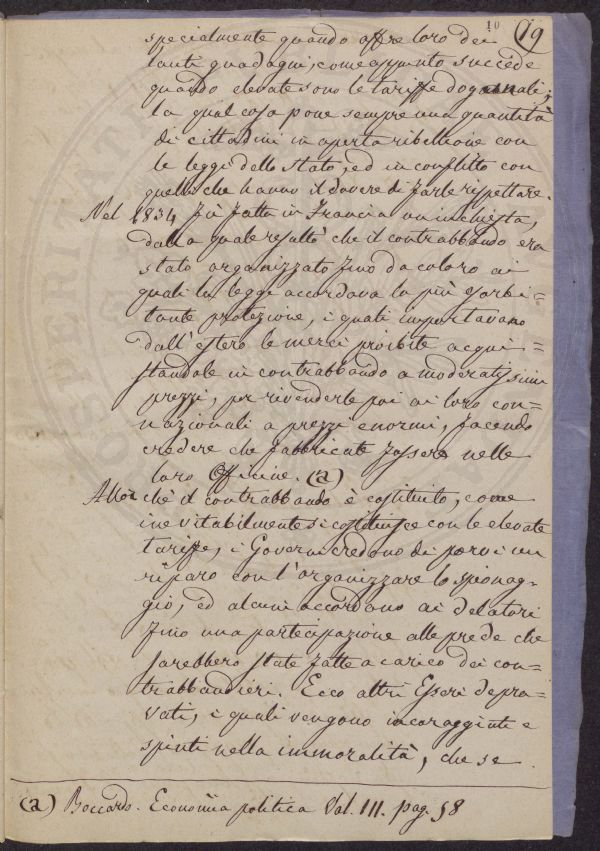 10 19
specialmente quando offre loro dei
lauti guadagni, come appunto succede
quando elevate sono le tariffe doganali;
la qual cosa pone sempre una quantità
di cittadini in aperta ribellione con
le leggi dello Stato, ed in conflitto con
quelli che hanno il dovere di farle rispettare.
Nel 1834 fù fatta in Francia un inchiesta,
dalla quale resultò che il contrabbando era
stato organizzato fino da coloro ai
quali la legge accordava la più esorbi=
tante protezione, i quali importavano
dall'estero le merci proibite acqui=
standole in contrabbando a moderatissimi
prezzi, per rivenderle poi ai loro con=
nazionali a prezzi enormi, facendo
credere che fabbricate fossero nelle
loro Officine. (a)
Allor chè il contrabbando è costituito, come
inevitabilmente si costituisce con le elevate
tariffe, i Governi credono di porvi un
riparo con l'organizzare lo spionag=
gio, ed alcuni accordano ai delatori
fino una partecipazione alle prede che
sarebbero state fatte a carico dei con=
trabbandieri. Ecco altri Esseri depra=
vati, i quali vengono incoraggiti e
spinti nella immoralità, che se
(a) Boccardo. Economia politica Vol. III. pag. 58